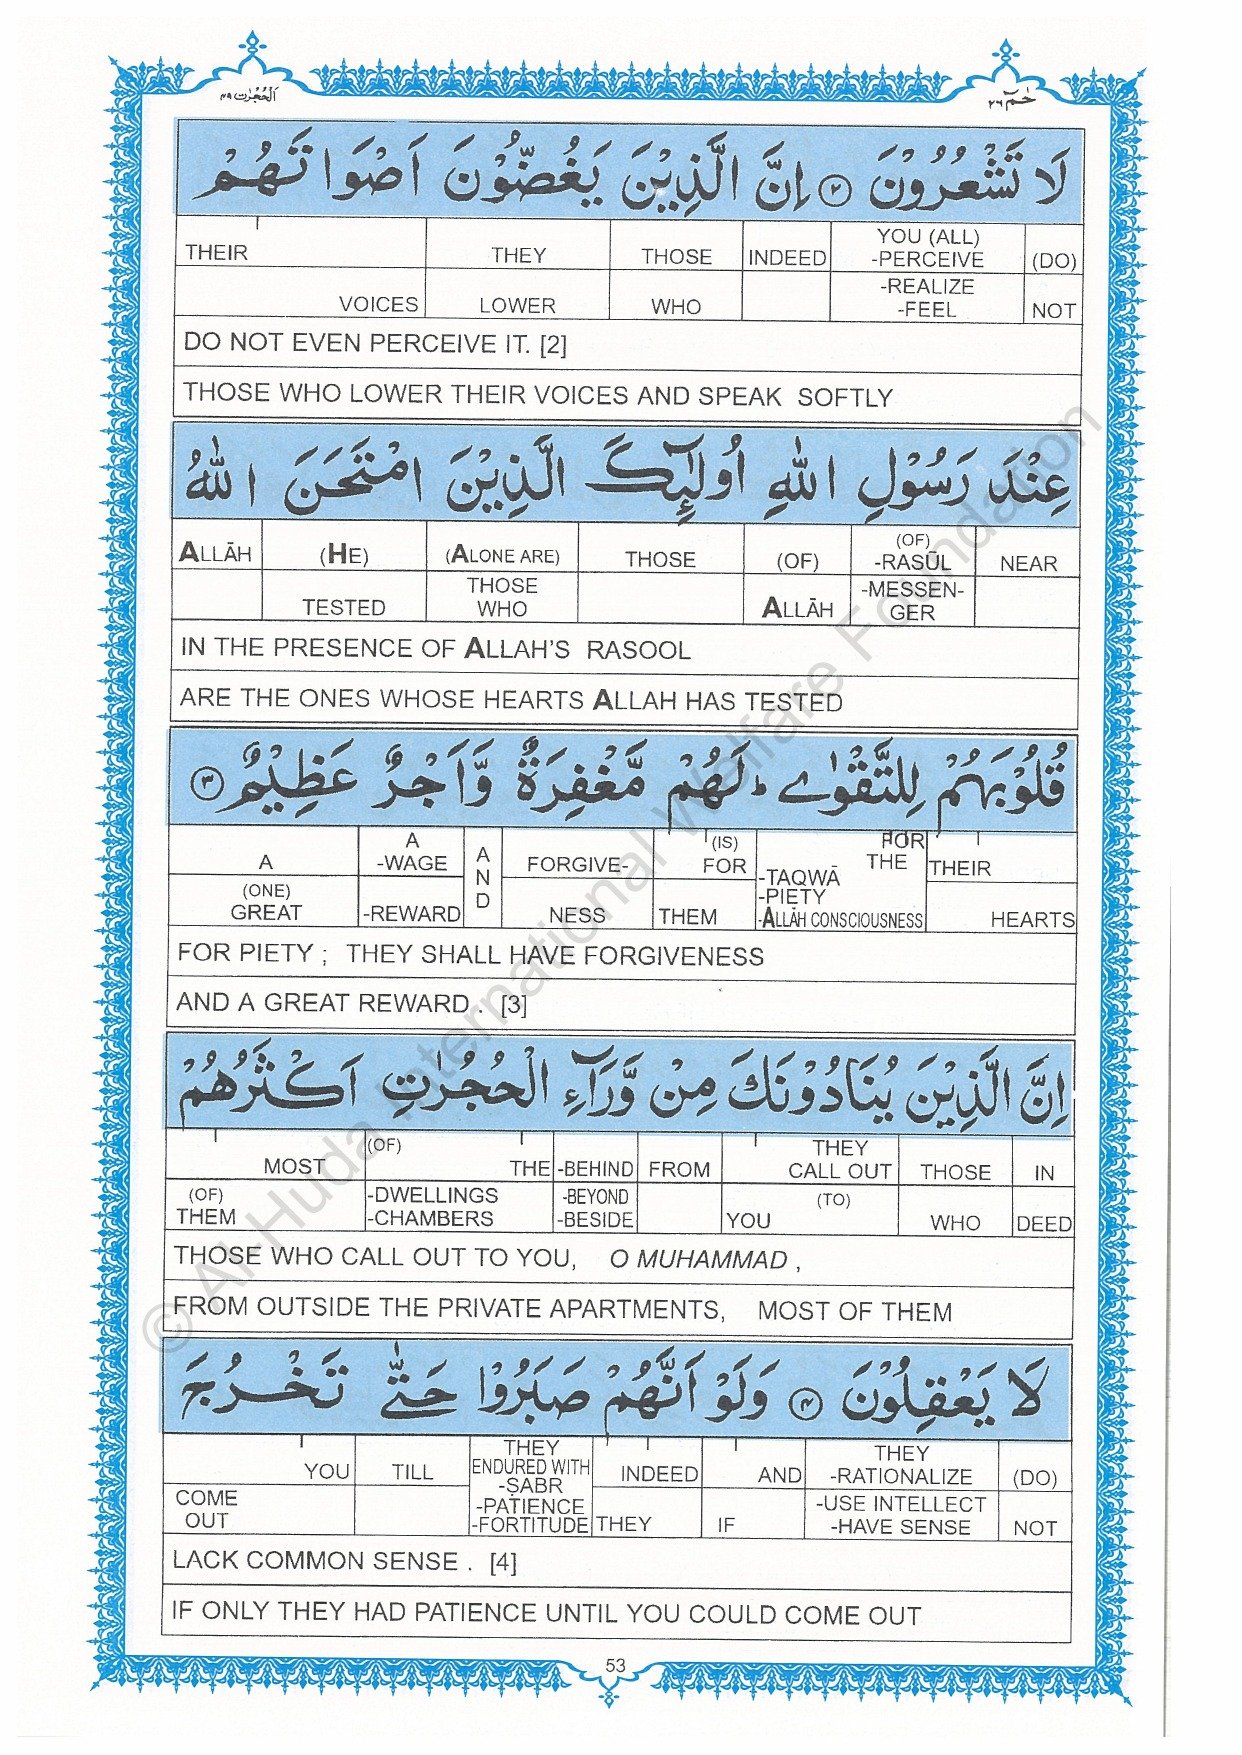 الحُجُرٰت ٤٩
حٰمٓ ٢٦
لَا تَشْعُرُوْنَ ﴿٢﴾ اِنَّ الَّذِيْنَ يَغُضُّوْنَ اَصْوَاتَهُمْ
THEIR THEY THOSE INDEED YOU (ALL) -PERCEIVE (DO)
VOICES LOWER WHO -REALIZE -FEEL NOT
DO NOT EVEN PERCEIVE IT. [2]
THOSE WHO LOWER THEIR VOICES AND SPEAK SOFTLY
عِنْدَ رَسُوْلِ اللّٰهِ اُولٰٓئِكَ الَّذِيْنَ امْتَحَنَ اللّٰهُ
ALLĀH (HE) (ALONE ARE) THOSE (OF) (OF) -RASŪL NEAR
TESTED THOSE WHO ALLĀH -MESSEN- GER
IN THE PRESENCE OF ALLAH'S RASOOL
ARE THE ONES WHOSE HEARTS ALLAH HAS TESTED
قُلُوْبَهُمْ لِلتَّقْوٰى ؕ لَهُمْ مَّغْفِرَةٌ وَّاَجْرٌ عَظِيْمٌ ﴿٣﴾
A A -WAGE AND FORGIVE- (IS) FOR FOR THE THEIR
(ONE) GREAT -REWARD NESS THEM -TAQWĀ -PIETY -ALLĀH CONSCIOUSNESS HEARTS
FOR PIETY ; THEY SHALL HAVE FORGIVENESS
AND A GREAT REWARD . [3]
اِنَّ الَّذِيْنَ يُنَادُوْنَكَ مِنْ وَّرَآءِ الْحُجُرٰتِ اَكْثَرُهُمْ
MOST (OF) THE -BEHIND FROM THEY CALL OUT THOSE IN
(OF) THEM -DWELLINGS -CHAMBERS -BEYOND -BESIDE YOU (TO) WHO DEED
THOSE WHO CALL OUT TO YOU, O MUHAMMAD ,
FROM OUTSIDE THE PRIVATE APARTMENTS, MOST OF THEM
لَا يَعْقِلُوْنَ ﴿٤﴾ وَلَوْ اَنَّهُمْ صَبَرُوْا حَتّٰى تَخْرُجَ
YOU TILL THEY ENDURED WITH -ṢABR INDEED AND THEY -RATIONALIZE (DO)
COME OUT -PATIENCE -FORTITUDE THEY IF -USE INTELLECT -HAVE SENSE NOT
LACK COMMON SENSE . [4]
IF ONLY THEY HAD PATIENCE UNTIL YOU COULD COME OUT
53
© Al-Huda International Welfare Foundation